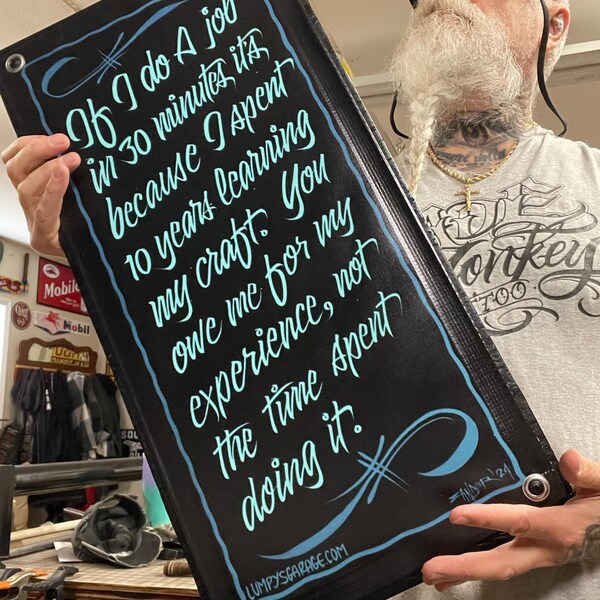 If I do A job
in 30 minutes it's
because I spent
10 years learning
my craft. You
owe me for my
experience, not
the time spent
doing it.
LUMPYSGARAGE.COM
Mobil
Mobil
Monkey
TOO